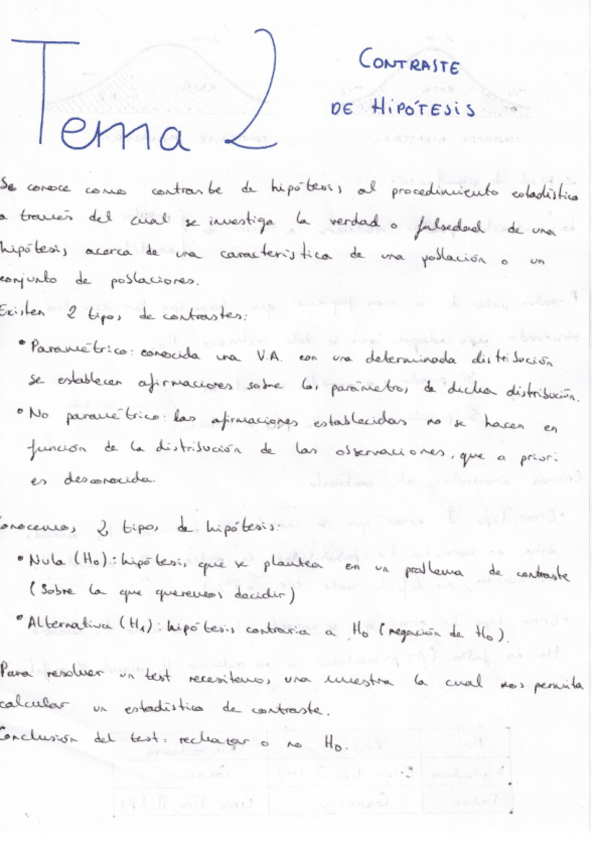 Tema 2
CONTRASTE
DE HIPÓTESIS
Se conoce como contraste de hipótesis al procedimiento estadístico
a través del cual se investiga la verdad o falsedad de una
hipótesis acerca de una característica de una población o un
conjunto de poblaciones.
Existen 2 tipos de contrastes:
• Paramétrico: conocida una V.A. con una determinada distribución
se establecen afirmaciones sobre los parámetros de dicha distribución.
• No paramétrico: las afirmaciones establecidas no se hacen en
función de la distribución de las observaciones, que a priori
es desconocida.
Conocemos 2 tipos de hipótesis:
• Nula (H0): hipótesis que se plantea en un problema de contraste
(Sobre la que queremos decidir)
• Alternativa (H1): hipótesis contraria a H0 (negación de H0).
Para resolver un test necesitamos una muestra la cual nos permita
calcular un estadístico de contraste.
Conclusión del test: rechazar o no H0.